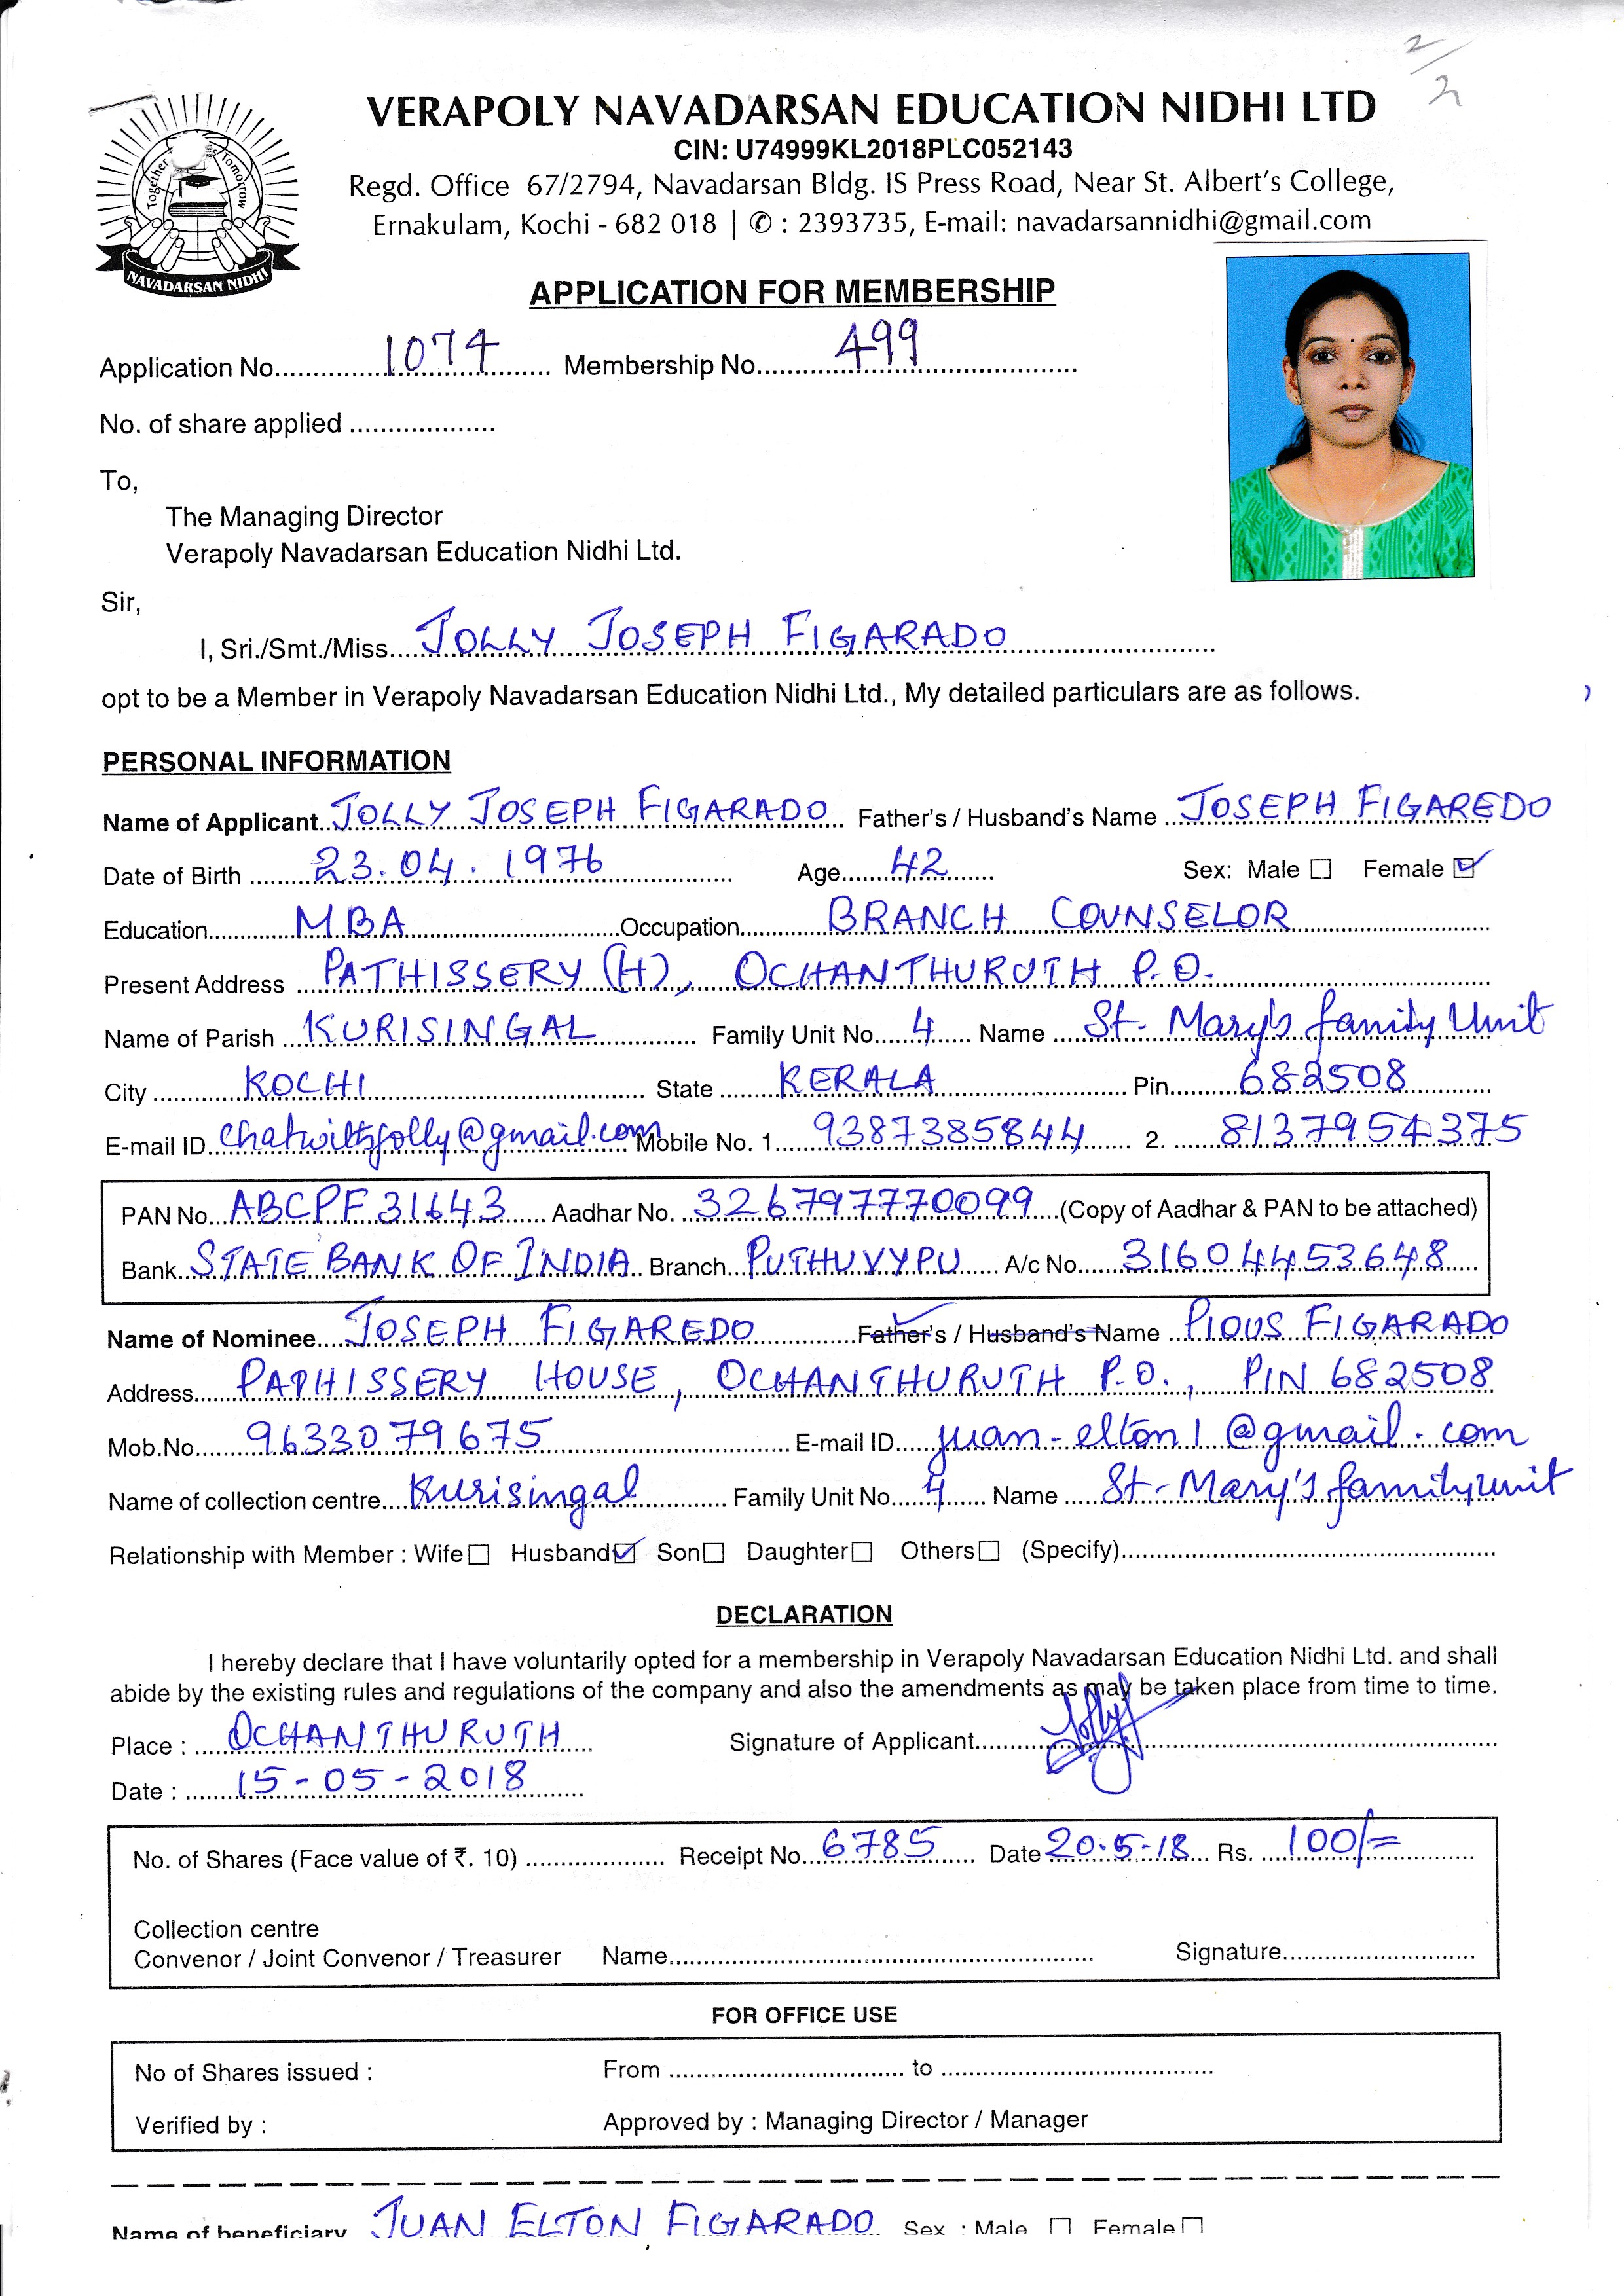 2/2
VERAPOLY NAVADARSAN EDUCATION NIDHI LTD
CIN: U74999KL2018PLC052143
Regd. Office 67/2794, Navadarsan Bldg. IS Press Road, Near St. Albert's College,
Ernakulam, Kochi - 682 018 | ✆ : 2393735, E-mail: navadarsannidhi@gmail.com
Together Tomorrow
NAVADARSAN NIDHI
APPLICATION FOR MEMBERSHIP
Application No. 1074 Membership No. 499
No. of share applied
To,
The Managing Director
Verapoly Navadarsan Education Nidhi Ltd.
Sir,
I, Sri./Smt./Miss. JOLLY JOSEPH FIGARADO
opt to be a Member in Verapoly Navadarsan Education Nidhi Ltd., My detailed particulars are as follows.
PERSONAL INFORMATION
Name of Applicant JOLLY JOSEPH FIGARADO Father's / Husband's Name JOSEPH FIGAREDO
Date of Birth 23.04.1976 Age 42 Sex: Male ☐ Female ☑
Education MBA Occupation BRANCH COUNSELOR
Present Address PATHISSERY (H), OCHANTHURUTH P.O.
Name of Parish KURISINGAL Family Unit No. 4 Name St. Mary's family Unit
City KOCHI State KERALA Pin 682508
E-mail ID chatwithjolly@gmail.com Mobile No. 1 9387385844 2. 8137954375
PAN No. ABCPF31643 Aadhar No. 326797770099 (Copy of Aadhar & PAN to be attached)
Bank STATE BANK OF INDIA Branch PUTHUVYPU A/c No. 31604453648
Name of Nominee JOSEPH FIGAREDO Father's / Husband's Name PIOUS FIGARADO
Address PAPHISSERY HOUSE, OCHANTHURUTH P.O., PIN 682508
Mob.No. 9633079675 E-mail ID juan-elton1@gmail.com
Name of collection centre Kurisingal Family Unit No. 4 Name St. Mary's family unit
Relationship with Member : Wife ☐ Husband ☑ Son ☐ Daughter ☐ Others ☐ (Specify)
DECLARATION
I hereby declare that I have voluntarily opted for a membership in Verapoly Navadarsan Education Nidhi Ltd. and shall
abide by the existing rules and regulations of the company and also the amendments as may be taken place from time to time.
Place : OCHANTHURUTH Signature of Applicant Jolly
Date : 15-05-2018
No. of Shares (Face value of ₹. 10) Receipt No. 6785 Date 20.5.18 Rs. 100/=
Collection centre
Convenor / Joint Convenor / Treasurer Name Signature
FOR OFFICE USE
No of Shares issued : From to
Verified by : Approved by : Managing Director / Manager
Name of beneficiary JUAN ELTON FIGARADO Sex : Male ☐ Female ☐